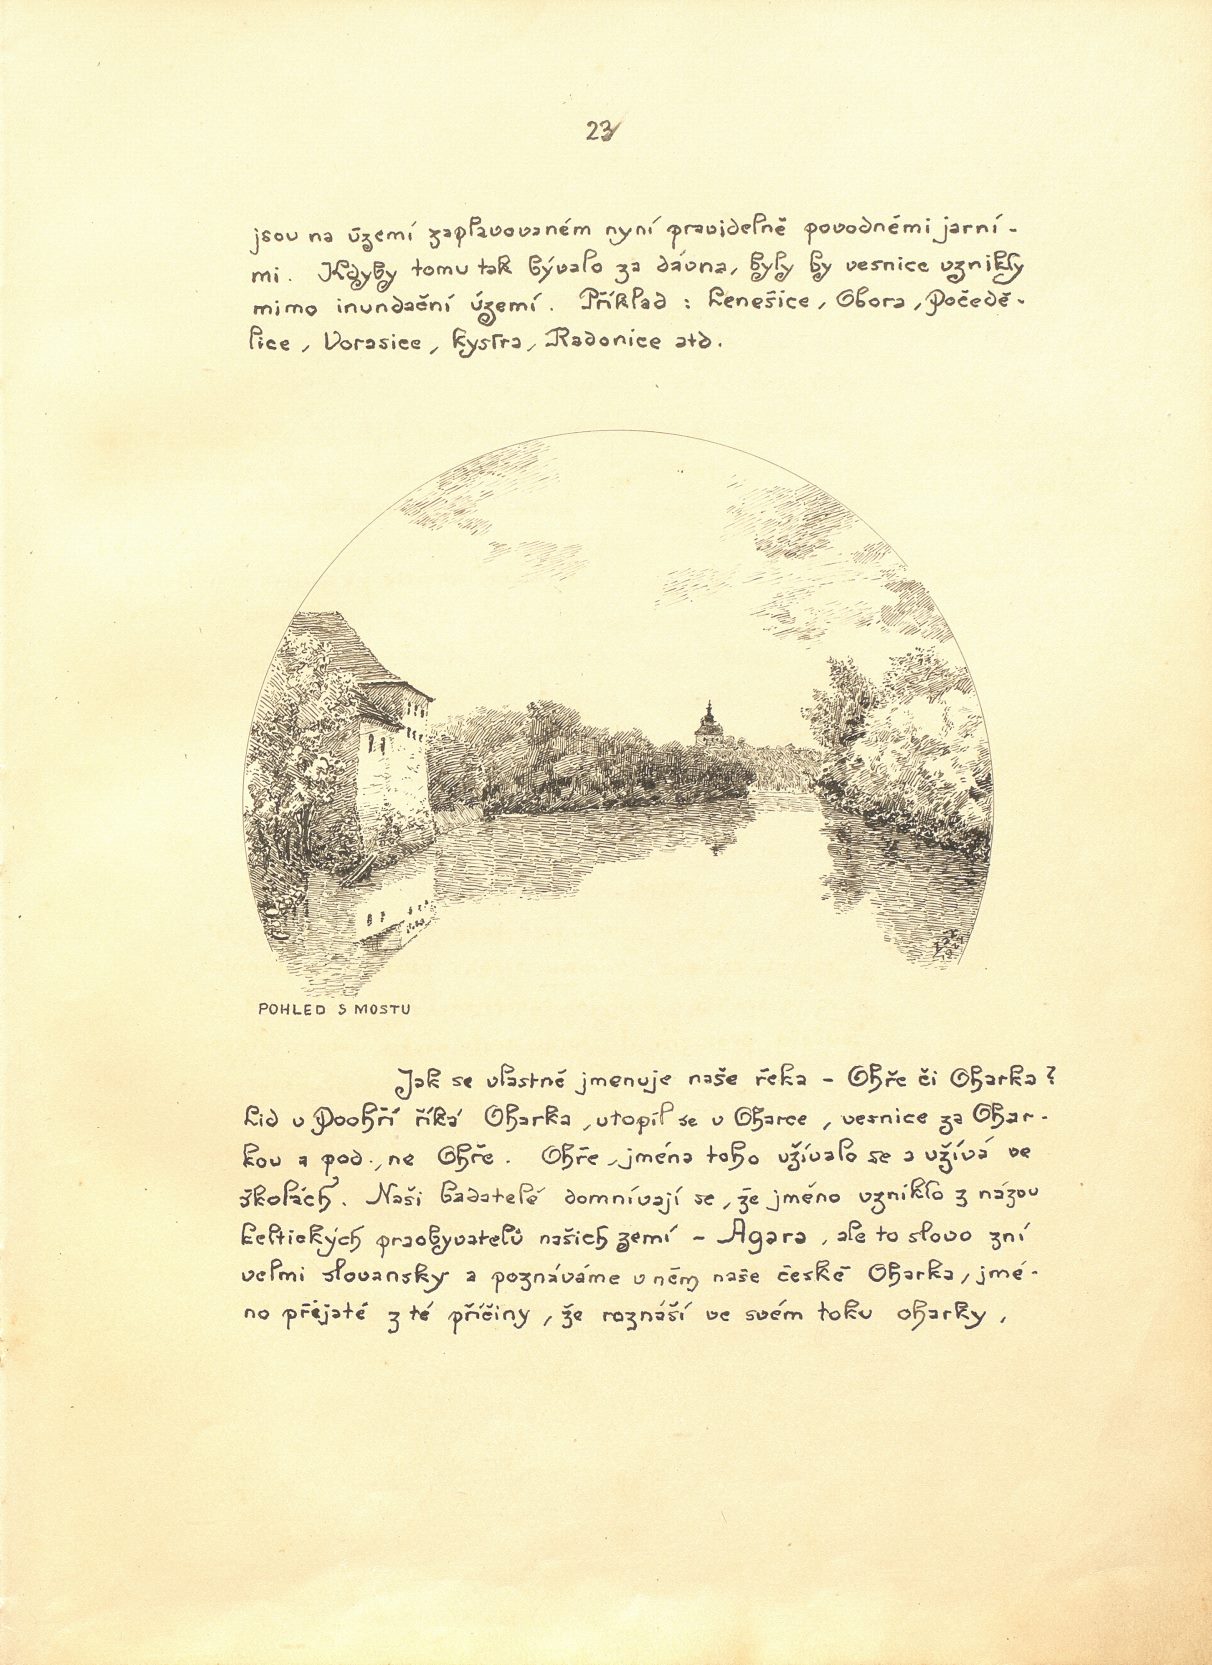 23
jsou na území zaplavovaném nyní pravidelně povodněmi jarní-
mi. Kdyby tomu tak bývalo za dávna, byly by vesnice vznikly
mimo inundační území. Příklad: Lenešice, Obora, Počedě-
lice, Vorasice, Kystra, Radonice atd.
POHLED S MOSTU
Jak se vlastně jmenuje naše řeka - Ohře či Oharka?
Lid v Poohří říká Oharka, utopil se v Oharce, vesnice za Ohar-
kou a pod., ne Ohře. Ohře, jména toho užívalo se a užívá ve
školách. Naši badatelé domnívají se, že jméno vzniklo z názvu
keltických praobyvatelů našich zemí - Agara, ale to slovo zní
velmi slovansky a poznáváme v něm naše české Oharka, jmé-
no přejaté z té příčiny, že roznáší ve svém toku oharky,